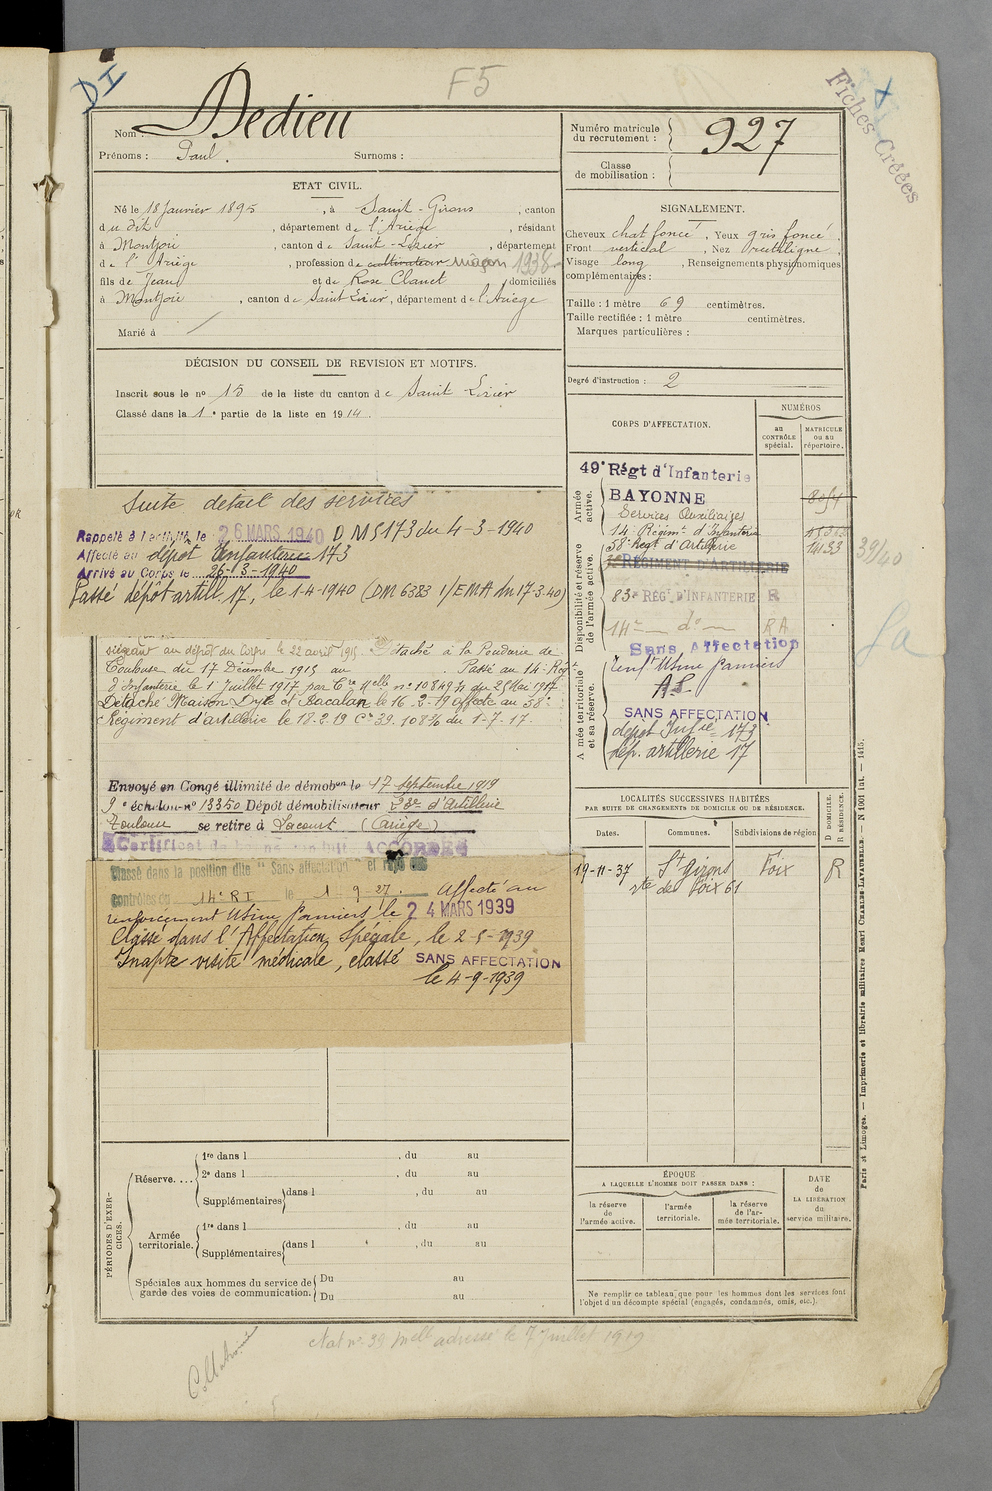 DI
F5
Fiches Créées
Nom : Dedieu
Prénoms : Paul. Surnoms :
Numéro matricule du recrutement : 927
Classe de mobilisation :
ETAT CIVIL.
Né le 18 Janvier 1895, à Saint-Girons, canton
du dit, département de l'Ariège, résidant
à Montjoie, canton de Saint-Lizier, département
de l'Ariège, profession de cultivateur maçon 1938
fils de Jean et de Rose Clanet, domiciliés
à Montjoie, canton de Saint Lizier, département de l'Ariège
Marié à
SIGNALEMENT.
Cheveux chat foncé, Yeux gris foncé,
Front vertical, Nez rectiligne,
Visage long, Renseignements physionomiques
complémentaires :
Taille : 1 mètre 69 centimètres.
Taille rectifiée : 1 mètre centimètres.
Marques particulières :
Degré d'instruction : 2
DÉCISION DU CONSEIL DE REVISION ET MOTIFS.
Inscrit sous le no 15 de la liste du canton de Saint Lizier
Classé dans la 1e partie de la liste en 1914.
Suite détail des services
Rappelé à l'activité le 26 MARS 1940 DM 5173 du 4-3-1940
Affecté au dépot Infanterie 173
Arrivé au Corps le 26-3-1940
Passé dépôt artill. 17, le 1-4-1940 (DM 6383 1/EMA du 17-3-40)
siégeant au dépôt du Corps le 22 avril 1915. Détaché à la Poudrerie de
Toulouse du 17 Décembre 1915 au Passé au 14e Rég
d'Infanterie le 1 Juillet 1917 par Cre Melle no 10849 du 25 Mai 1917
Détaché Maison Dyle et Bacalan le 16-2-19 affecté au 58e
Régiment d'artillerie le 18-2-19 Ce 39.108 du 1-7-17.
Envoyé en Congé illimité de démobon le 17 septembre 1919
9e échelon no 13350 Dépôt démobilisateur 23e d'Artillerie
Toulouse se retire à Lacourt (Ariège)
Certificat de bonne conduite ACCORDÉ
Classé dans la position dite "Sans affectation" et rayé des
contrôles du 14e RI le 1-9-27. Affecté au
renforcement Usine Pamiers le 24 MARS 1939
Classé dans l'Affectation Spéciale, le 2-5-1939
Inapte visite médicale, classé SANS AFFECTATION
le 4-9-1939
CORPS D'AFFECTATION.
NUMÉROS
au CONTRÔLE spécial.
MATRICULE ou au répertoire.
Armée active.
49e Régt d'Infanterie
BAYONNE
Services Auxiliaires
Disponibilité et réserve de l'armée active.
14e Régimt d'Infanterie
58e Regt d'Artillerie
RÉGIMENT D'ARTILLERIE
83e RÉGt D'INFANTERIE R
14e — do — RA
Sans Affectation
39/40
Armée territoriale et sa réserve.
renft Usine Pamiers
AS
SANS AFFECTATION
dépot Infie 173
dép. artillerie 17
LOCALITÉS SUCCESSIVES HABITÉES
PAR SUITE DE CHANGEMENTS DE DOMICILE OU DE RÉSIDENCE.
D DOMICILE.
R RÉSIDENCE.
Dates. Communes. Subdivisions de région
19-11-37 St Girons Foix R
rte de Foix 61
PÉRIODES D'EXERCICES.
Réserve....
1re dans l , du au
2e dans l , du au
Supplémentaires dans l , du au
Armée territoriale.
1re dans l , du au
Supplémentaires dans l , du au
Spéciales aux hommes du service de garde des voies de communication.
Du au
Du au
ÉPOQUE
A LAQUELLE L'HOMME DOIT PASSER DANS :
la réserve de l'armée active.
l'armée territoriale.
la réserve de l'armée territoriale.
DATE de LA LIBÉRATION du service militaire.
Ne remplir ce tableau que pour les hommes dont les services font
l'objet d'un décompte spécial (engagés, condamnés, omis, etc.).
Paris et Limoges. — Imprimerie et librairie militaires Henri CHARLES-LAVAUZELLE. — N 1001 Int. — 1415.
Collationné
Etat no 39 Mell adressé le 7 Juillet 1919